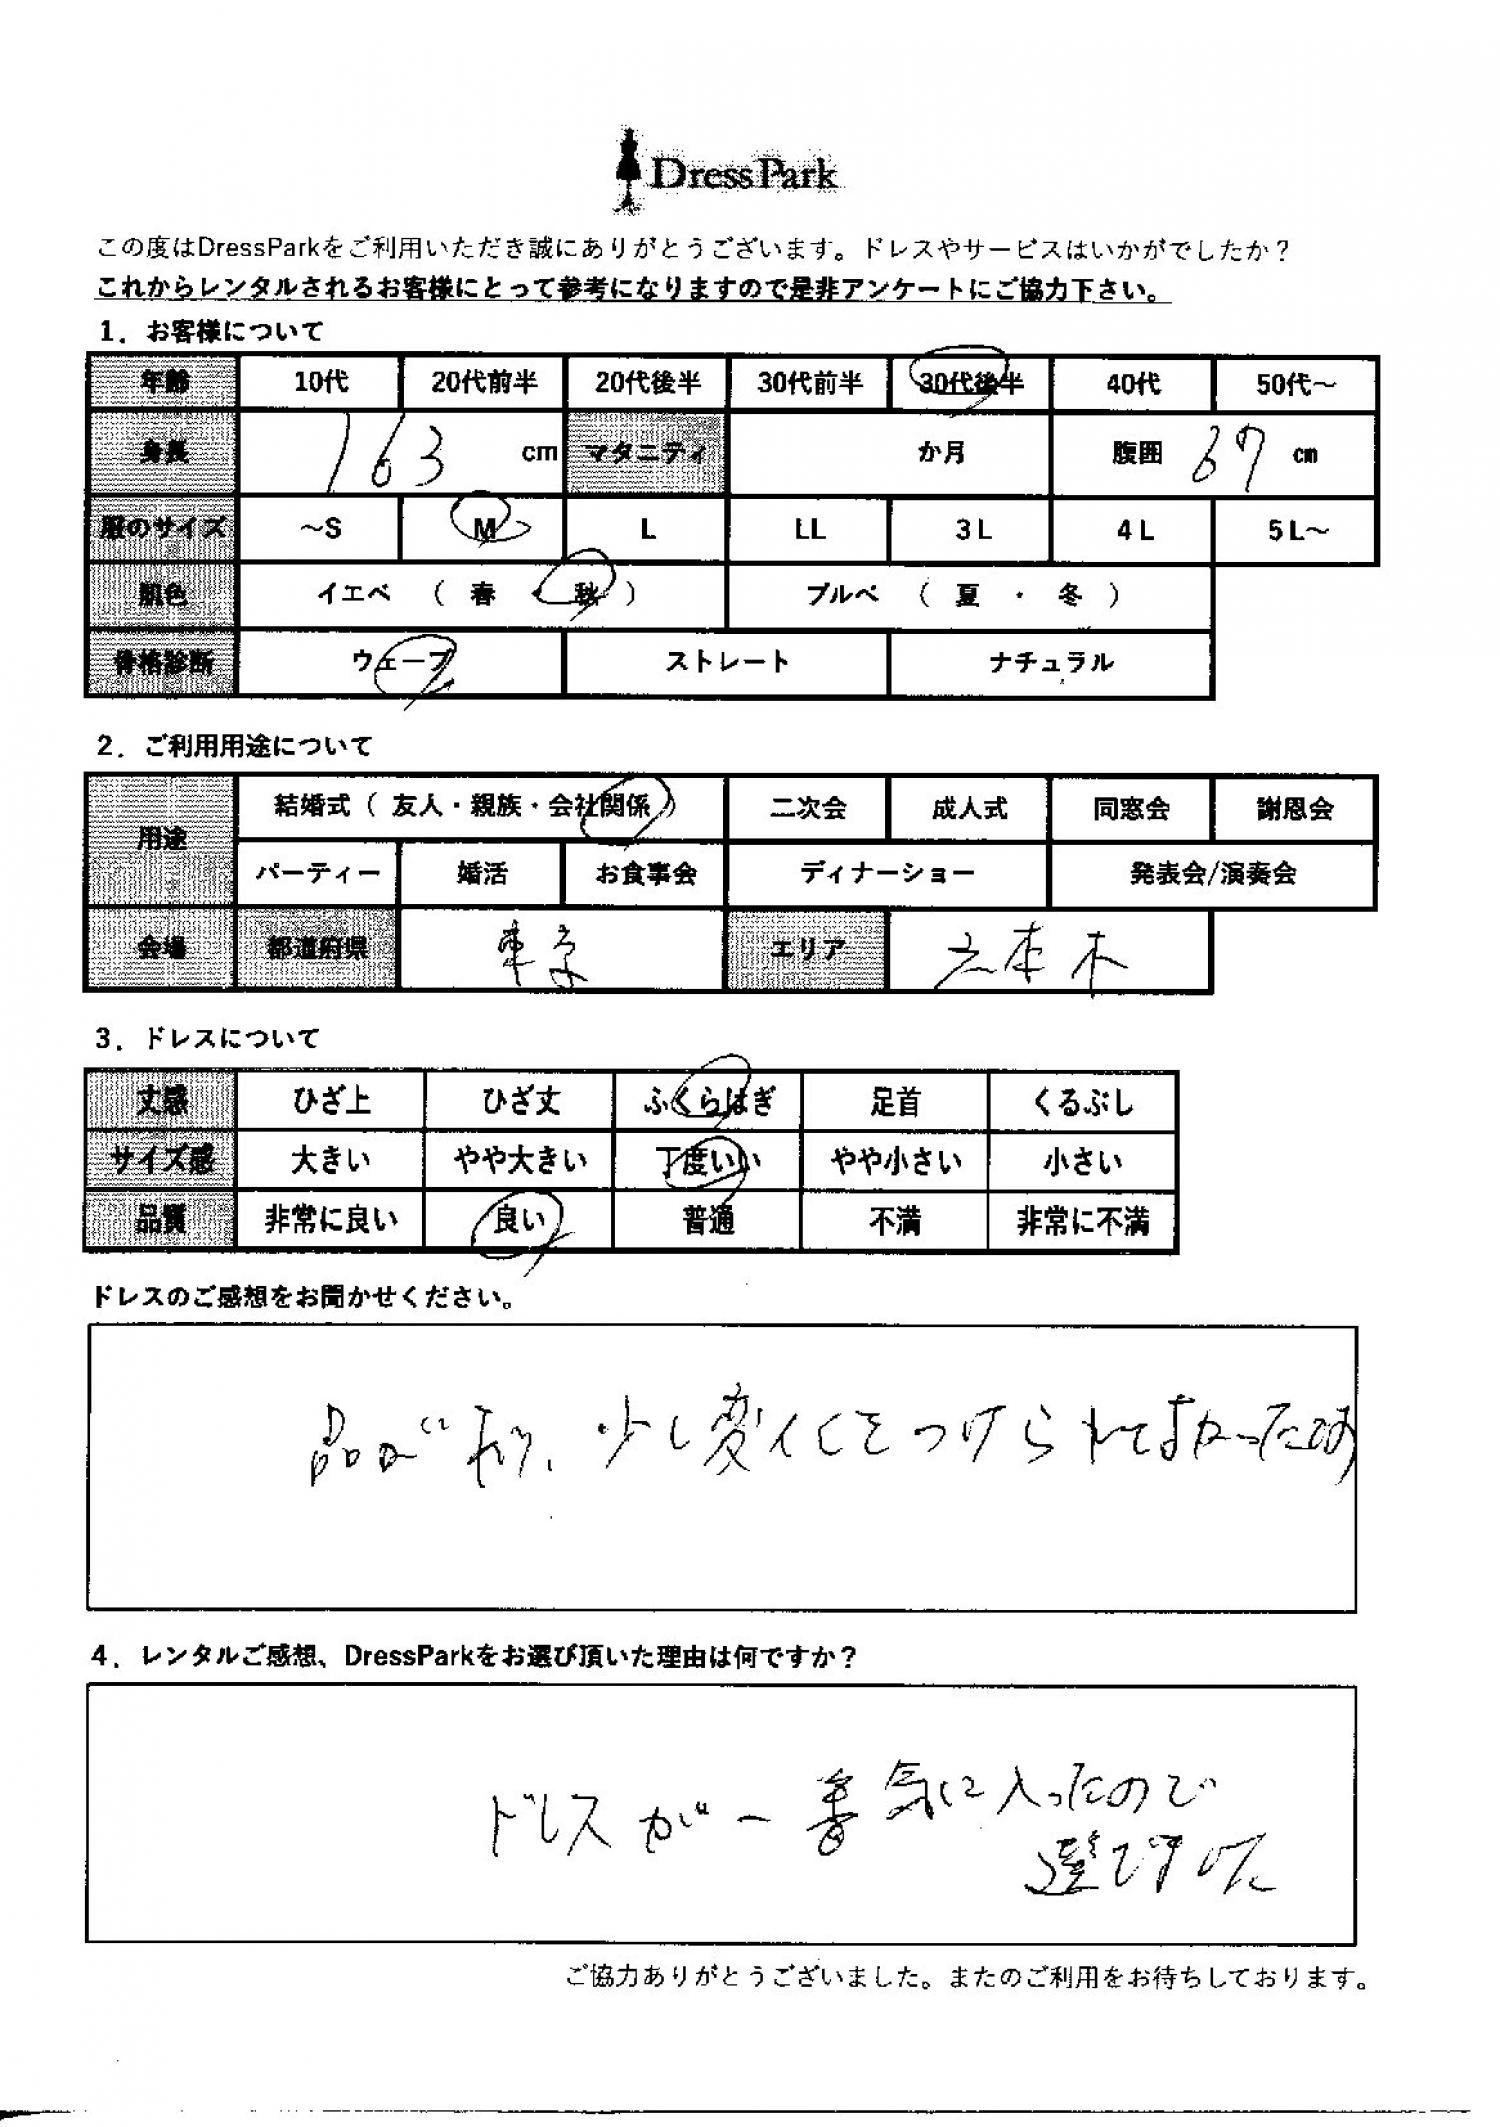 DressPark
この度はDressParkをご利用いただき誠にありがとうございます。ドレスやサービスはいかがでしたか？
これからレンタルされるお客様にとって参考になりますので是非アンケートにご協力下さい。
1．お客様について
年齢 10代 20代前半 20代後半 30代前半 30代後半 40代 50代～
身長 163 cm マタニティ か月 腹囲 67 cm
服のサイズ ～S M L LL 3L 4L 5L～
肌色 イエベ （ 春 ・ 秋 ） ブルベ （ 夏 ・ 冬 ）
骨格診断 ウェーブ ストレート ナチュラル
2．ご利用用途について
用途 結婚式（ 友人・親族・会社関係 ） 二次会 成人式 同窓会 謝恩会
パーティー 婚活 お食事会 ディナーショー 発表会/演奏会
会場 都道府県 東京 エリア 六本木
3．ドレスについて
丈感 ひざ上 ひざ丈 ふくらはぎ 足首 くるぶし
サイズ感 大きい やや大きい 丁度いい やや小さい 小さい
品質 非常に良い 良い 普通 不満 非常に不満
ドレスのご感想をお聞かせください。
品が、少し変化をつけられてよかった
4．レンタルご感想、DressParkをお選び頂いた理由は何ですか？
ドレスが一番気に入ったので
選びました
ご協力ありがとうございました。またのご利用をお待ちしております。